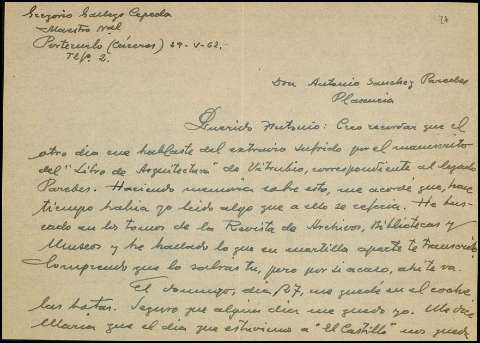 Gregorio Gallego Cepeda
Maestro Nal
Portezuelo (Cáceres) 29-V-62.
Tlfº 2.
Don Antonio Sanchez Paredes
Plasencia
Querido Antonio: Creo recordar que el
otro dia me hablaste del extravio sufrido por el manuscrito
del "Libro de Arquitectura" de Vitrubio, correspondiente al legado
Paredes. Haciendo memoria sobre esto, me acordé que, hace
tiempo habia yo leido algo que a ello se referia. He bus-
cado en los tomos de la Revista de Archivos, Bibliotecas y
Museos y he hallado lo que en cuartilla aparte te transcribo
Comprendo que lo sabras tu, pero por si acaso, ahí te va.
El domingo, dia 27, me quedé en el coche
las botas. Seguro que algun dia me quedo yo. Me dice
Maria que el dia que estuvimos a "El Castillo" nos quedó